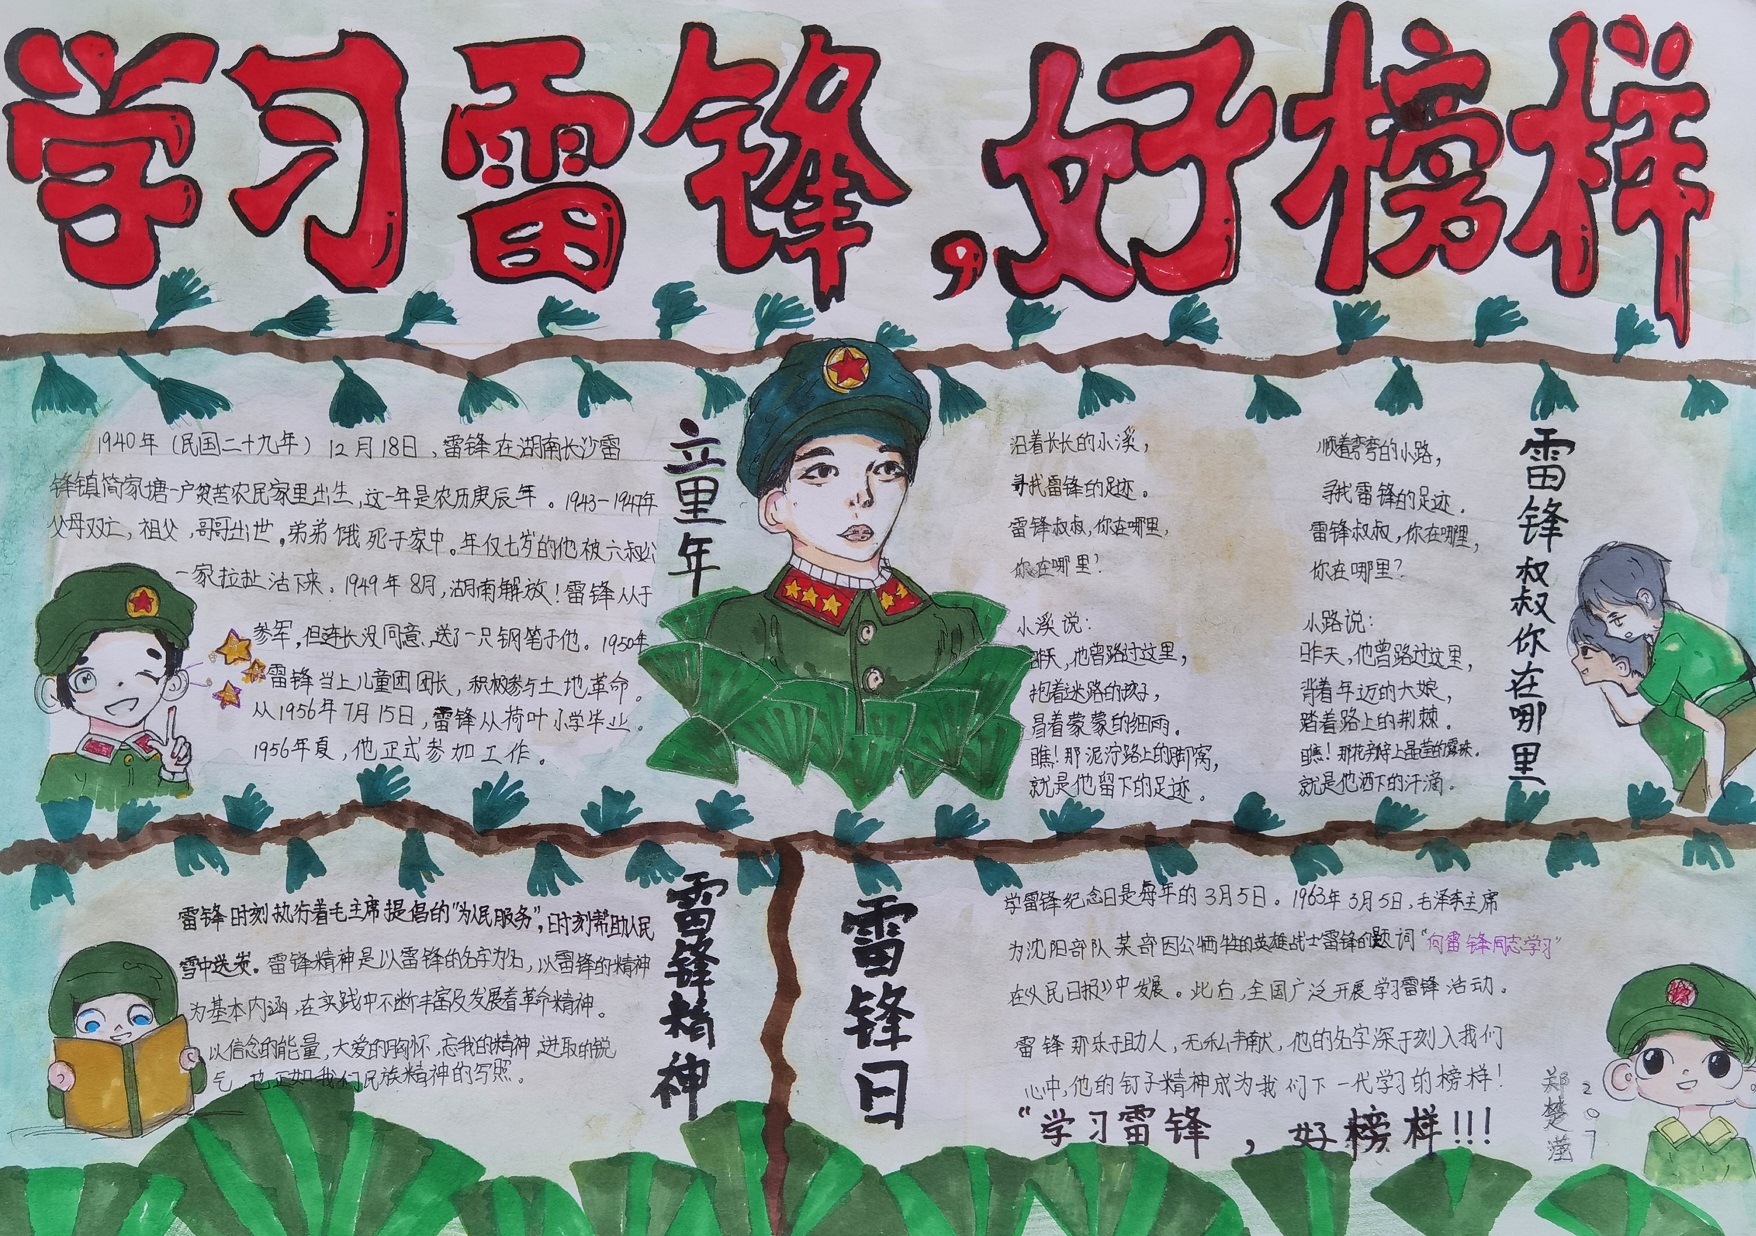 学习雷锋,好榜样
1940年(民国二十九年)12月18日,雷锋在湖南长沙雷
锋镇简家塘一户贫苦农民家里出生,这一年是农历庚辰年。1943-1947年
父母双亡,祖父,哥哥出世,弟弟饿死于家中。年仅七岁的他被六叔公
一家拉扯活下来。1949年8月,湖南解放!雷锋从于
参军,但连长没同意,送了一只钢笔于他。1950年
雷锋当上儿童团团长,积极参与土地革命。
从1956年7月15日,雷锋从荷叶小学毕业。
1956年夏,他正式参加工作。
立里年
沿着长长的小溪,
寻找雷锋的足迹。
雷锋叔叔,你在哪里,
你在哪里?
小溪说:
昨天,他曾路过这里,
抱着迷路的孩子,
冒着蒙蒙的细雨。
瞧!那泥泞路上的脚窝,
就是他留下的足迹。
顺着弯弯的小路,
寻找雷锋的足迹。
雷锋叔叔,你在哪里,
你在哪里?
小路说:
昨天,他曾路过这里,
背着年迈的大娘,
踏着路上的荆棘。
瞧!那花瓣上晶莹的露珠,
就是他洒下的汗滴。
雷锋叔叔你在哪里
雷锋时刻执行着毛主席提倡的"为人民服务",时刻帮助人民
雪中送炭。雷锋精神是以雷锋的名字为名,以雷锋的精神
为基本内涵,在实践中不断丰富及发展着革命精神。
以信念的能量,大爱的胸怀,忘我的精神,进取的锐
气,也正如我们民族精神的写照。
雷锋精神
雷锋日
学雷锋纪念日是每年的3月5日。1963年3月5日,毛泽东主席
为沈阳部队某部因公牺牲的英雄战士雷锋的题词"向雷锋同志学习"
在《人民日报》中发展。此后,全国广泛开展学习雷锋活动。
雷锋那乐于助人,无私奉献,他的名字深于刻入我们
心中,他的钉子精神成为我们下一代学习的榜样!
"学习雷锋,好榜样!!!
郑楚滢
207